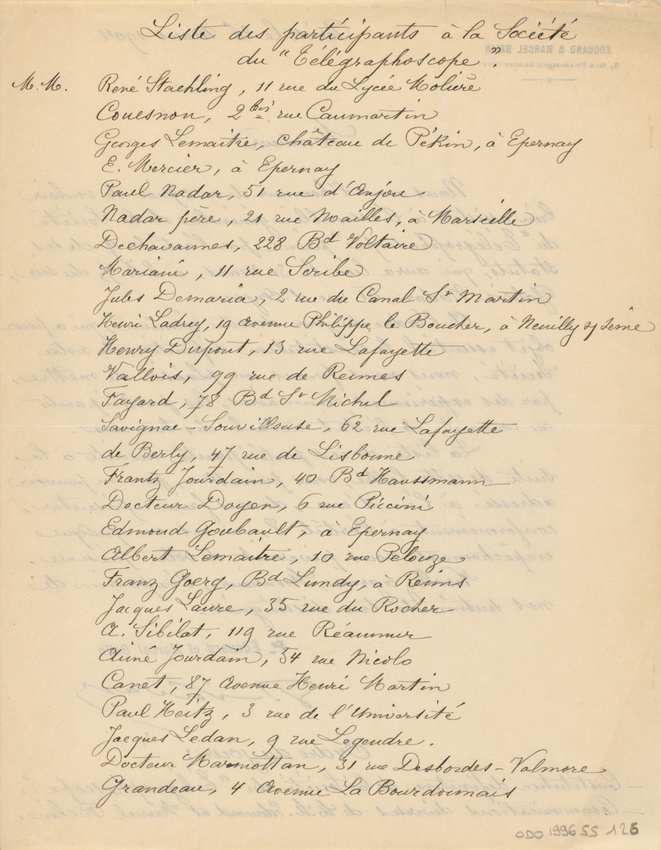 Liste des participants à la Société
du "Télégraphoscope".
M.M. René Staehling, 11 rue du Lycée Molière
Couesnon, 2 bis rue Caumartin
Georges Lemaitre, château de Pékin, à Epernay
E. Mercier, à Epernay
Paul Nadar, 51 rue d'Anjou
Nadar père, 21 rue Noailles, à Marseille
Dechavannes, 228 Bd Voltaire
Mariani, 11 rue Scribe
Jules Demaria, 2 rue du Canal St Martin
Henri Ladrey, 19 Avenue Philippe le Boucher, à Neuilly s/ Seine
Henry Dupont, 13 rue Lafayette
Vallois, 99 rue de Rennes
Fayard, 78 Bd St Michel
Savignac-Souvillouse, 62 rue Lafayette
de Berly, 47 rue de Lisbonne
Frantz Jourdain, 40 Bd Haussmann
Docteur Doyen, 6 rue Piccini
Edmond Goubault, à Epernay
Albert Lemaitre, 10 rue Pelouze
Franz Goerg, Bd Lundy, à Reims
Jacques Laure, 35 rue du Rocher
A. Sibilat, 119 rue Réaumur
Aimé Jourdain, 54 rue Nicolo
Canet, 87 Avenue Henri Martin
Paul Heitz, 3 rue de l'Université
Jacques Ledan, 9 rue Legendre.
Docteur Marmottan, 31 rue Desbordes-Valmore
Grandeau, 4 Avenue La Bourdonnais
ODO 1996 55 126